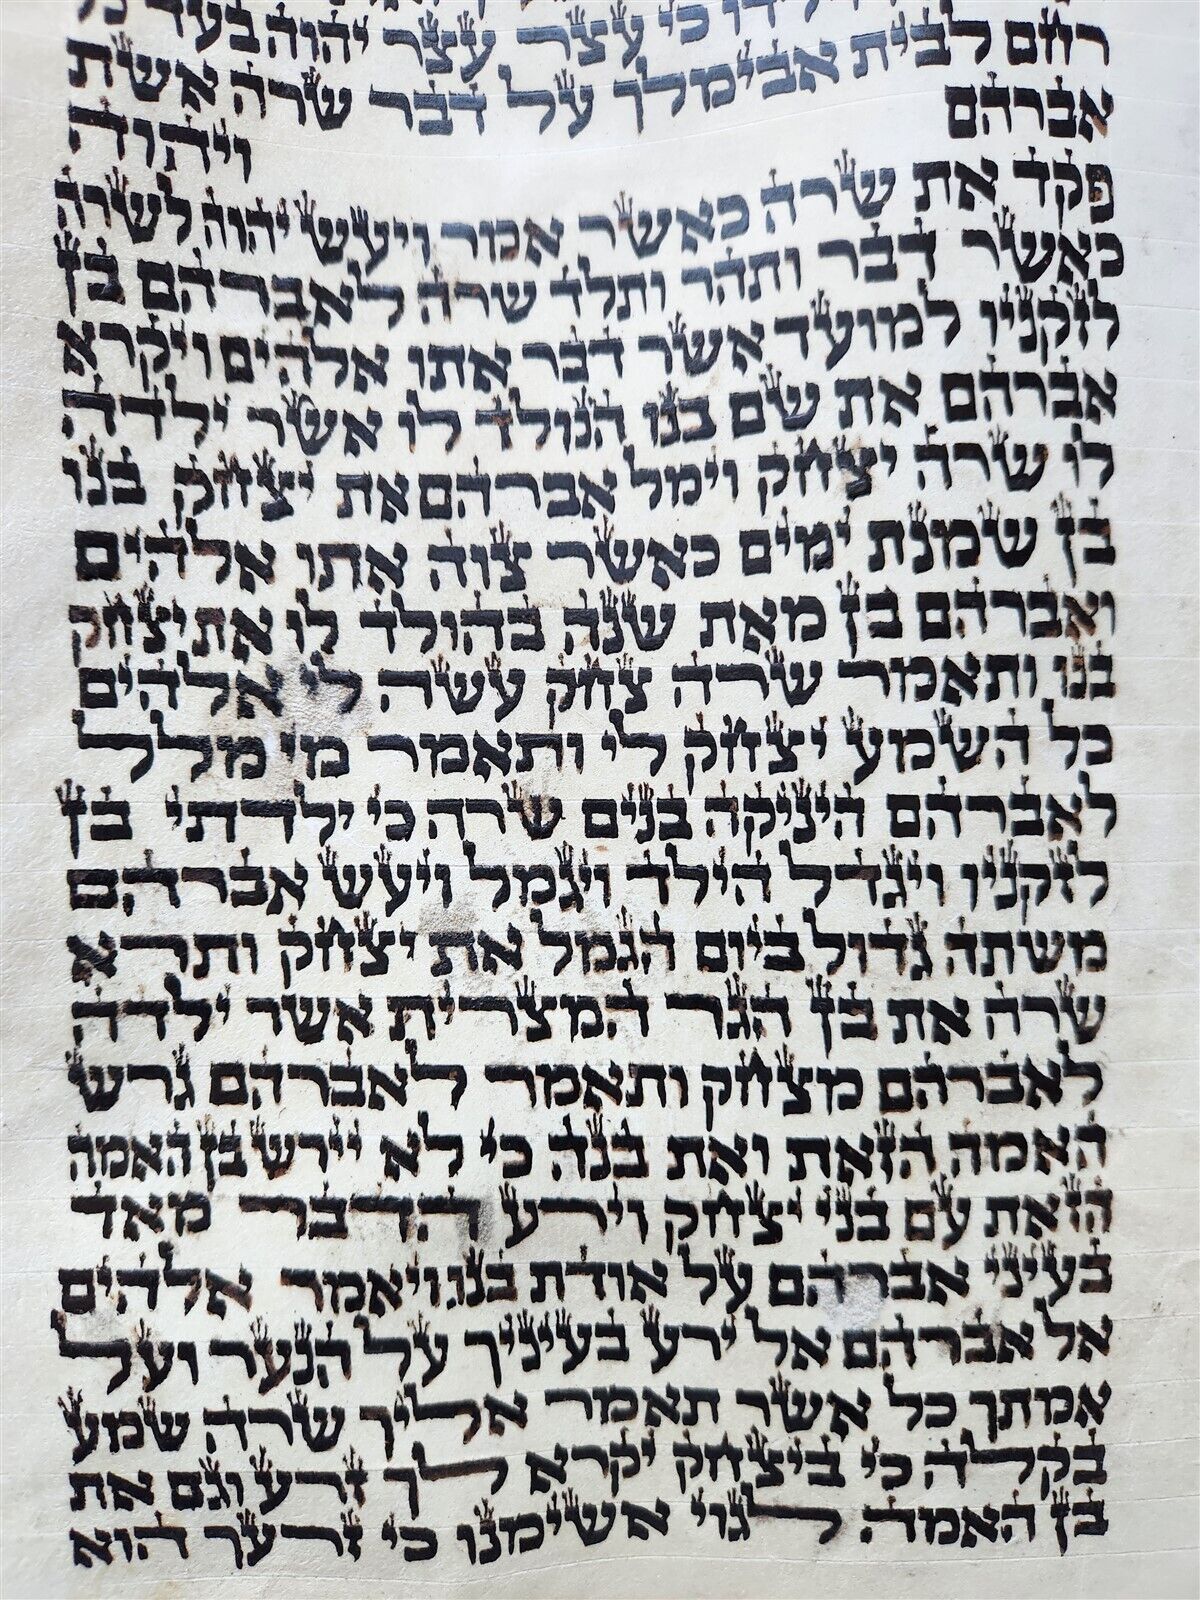 כי עצר עצר יהוה בעד כל
רחם לבית אבימלך על דבר שרה אשת
אברהם ויהוה
פקד את שרה כאשר אמר ויעש יהוה לשרה
כאשר דבר ותהר ותלד שרה לאברהם בן
לזקניו למועד אשר דבר אתו אלהים ויקרא
אברהם את שם בנו הנולד לו אשר ילדה
לו שרה יצחק וימל אברהם את יצחק בנו
בן שמנת ימים כאשר צוה אתו אלהים
ואברהם בן מאת שנה בהולד לו את יצחק
בנו ותאמר שרה צחק עשה לי אלהים
כל השמע יצחק לי ותאמר מי מלל
לאברהם היניקה בנים שרה כי ילדתי בן
לזקניו ויגדל הילד ויגמל ויעש אברהם
משתה גדול ביום הגמל את יצחק ותרא
שרה את בן הגר המצרית אשר ילדה
לאברהם מצחק ותאמר לאברהם גרש
האמה הזאת ואת בנה כי לא יירש בן האמה
הזאת עם בני יצחק וירע הדבר מאד
בעיני אברהם על אודת בנו ויאמר אלהים
אל אברהם אל ירע בעיניך על הנער ועל
אמתך כל אשר תאמר אליך שרה שמע
בקלה כי ביצחק יקרא לך זרע וגם את
בן האמה לגוי אשימנו כי זרעך הוא